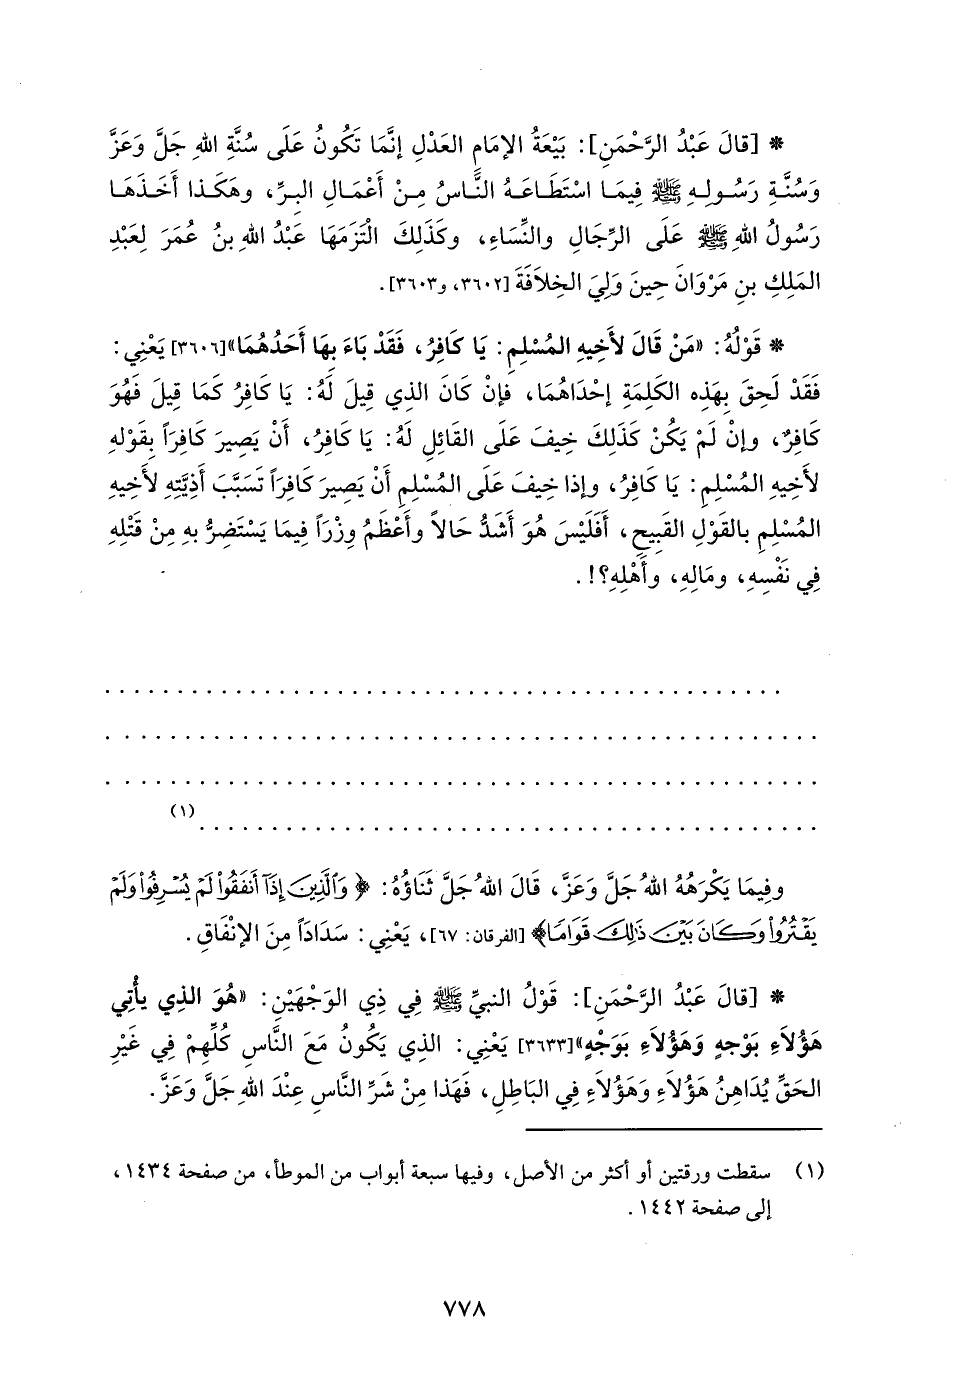 * [قَالَ عَبْدُ الرَّحْمَنِ]: بَيْعَةُ الإمَامِ العَدْلِ إنَّمَا تَكُونُ عَلَى سُنَّةِ اللهِ جَلَّ وَعَزَّ
وَسُنَّةِ رَسُولِهِ ﷺ فِيمَا اسْتَطَاعَهُ النَّاسُ مِنْ أَعْمَالِ البِرِّ، وهَكَذا أَخَذَهَا
رَسُولُ اللهِ ﷺ عَلَى الرِّجَالِ والنِّسَاءِ، وكَذَلِكَ الْتَزَمَهَا عَبْدُ اللهِ بنُ عُمَرَ لِعَبْدِ
المَلِكِ بنِ مَرْوَانَ حِينَ وَلِيَ الخِلاَفَةَ [٣٦٠٢، و٣٦٠٣].
* قَوْلُهُ: «مَنْ قَالَ لأَخِيهِ المُسْلِمِ: يَا كَافِرُ، فَقَدْ بَاءَ بِهَا أَحَدُهُمَا»[٣٦٠٦] يَعْنِي:
فَقَدْ لَحِقَ بِهَذِه الكَلِمَةِ إحْدَاهُمَا، فإنْ كَانَ الذِي قِيلَ لَهُ: يَا كَافِرُ كَمَا قِيلَ فَهُوَ
كَافِرٌ، وإنْ لَمْ يَكُنْ كَذَلِكَ خِيفَ عَلَى القَائِلِ لَهُ: يَا كَافِرُ، أَنْ يَصِيرَ كَافِرَاً بِقَوْلهِ
لأَخِيهِ المُسْلِمِ: يَا كَافِرُ، وإذا خِيفَ عَلَى المُسْلِمِ أَنْ يَصِيرَ كَافِرَاً تَسَبَّبَ أَذِيَّتِهِ لأَخِيهِ
المُسْلِمِ بالقَوْلِ القَبِيحِ، أَفَلَيْسَ هُوَ أَشَدُّ حَالاً وأَعْظَمُ وِزْرَاً فِيمَا يَسْتَضِرُّ بهِ مِنْ قَتْلِهِ
فِي نَفْسِهِ، ومَالِهِ، وأَهْلِهِ؟!.
. . . . . . . . . . . . . . . . . . . . . . . . . . . . . . . . . . . . . . . . . . . . . .
. . . . . . . . . . . . . . . . . . . . . . . . . . . . . . . . . . . . . . . . . . . . . . . .
. . . . . . . . . . . . . . . . . . . . . . . . . . . . . . . . . . . . . . . . . . . . . . . .
. . . . . . . . . . . . . . . . . . . . . . . . . . . . . . . . . . . . . . . . . . (١)
وفِيمَا يَكْرَهُهُ اللهُ جَلَّ وَعَزَّ، قَالَ اللهُ جَلَّ ثَنَاؤُهُ: ﴿وَالَّذِينَ إِذَا أَنفَقُوا لَمْ يُسْرِفُوا وَلَمْ
يَقْتُرُوا وَكَانَ بَيْنَ ذَلِكَ قَوَامًا﴾ [الفرقان: ٦٧]، يَعْنِي: سَدَادَاً مِنَ الإنْفَاقِ.
* [قالَ عَبْدُ الرَّحْمَنِ]: قَوْلُ النبيِّ ﷺ فِي ذِي الوَجْهَيْنِ: «هُوَ الذِي يأْتِي
هَؤُلاَءِ بَوْجهٍ وَهَؤُلاَءِ بَوْجْهٍ»[٣٦٣٣] يَعْنِي: الذِي يَكُونُ مَعَ النَّاسِ كُلِّهِمْ فِي غَيْرِ
الحَقِّ يُدَاهِنُ هَؤُلاَءِ وَهَؤُلاَءِ فِي البَاطِلِ، فَهَذا مِنْ شَرِّ النَّاسِ عِنْدَ اللهِ جَلَّ وَعَزَّ.
(١) سقطت ورقتين أو أكثر من الأصل، وفيها سبعة أبواب من الموطأ، من صفحة ١٤٣٤،
إلى صفحة ١٤٤٢.
٧٧٨